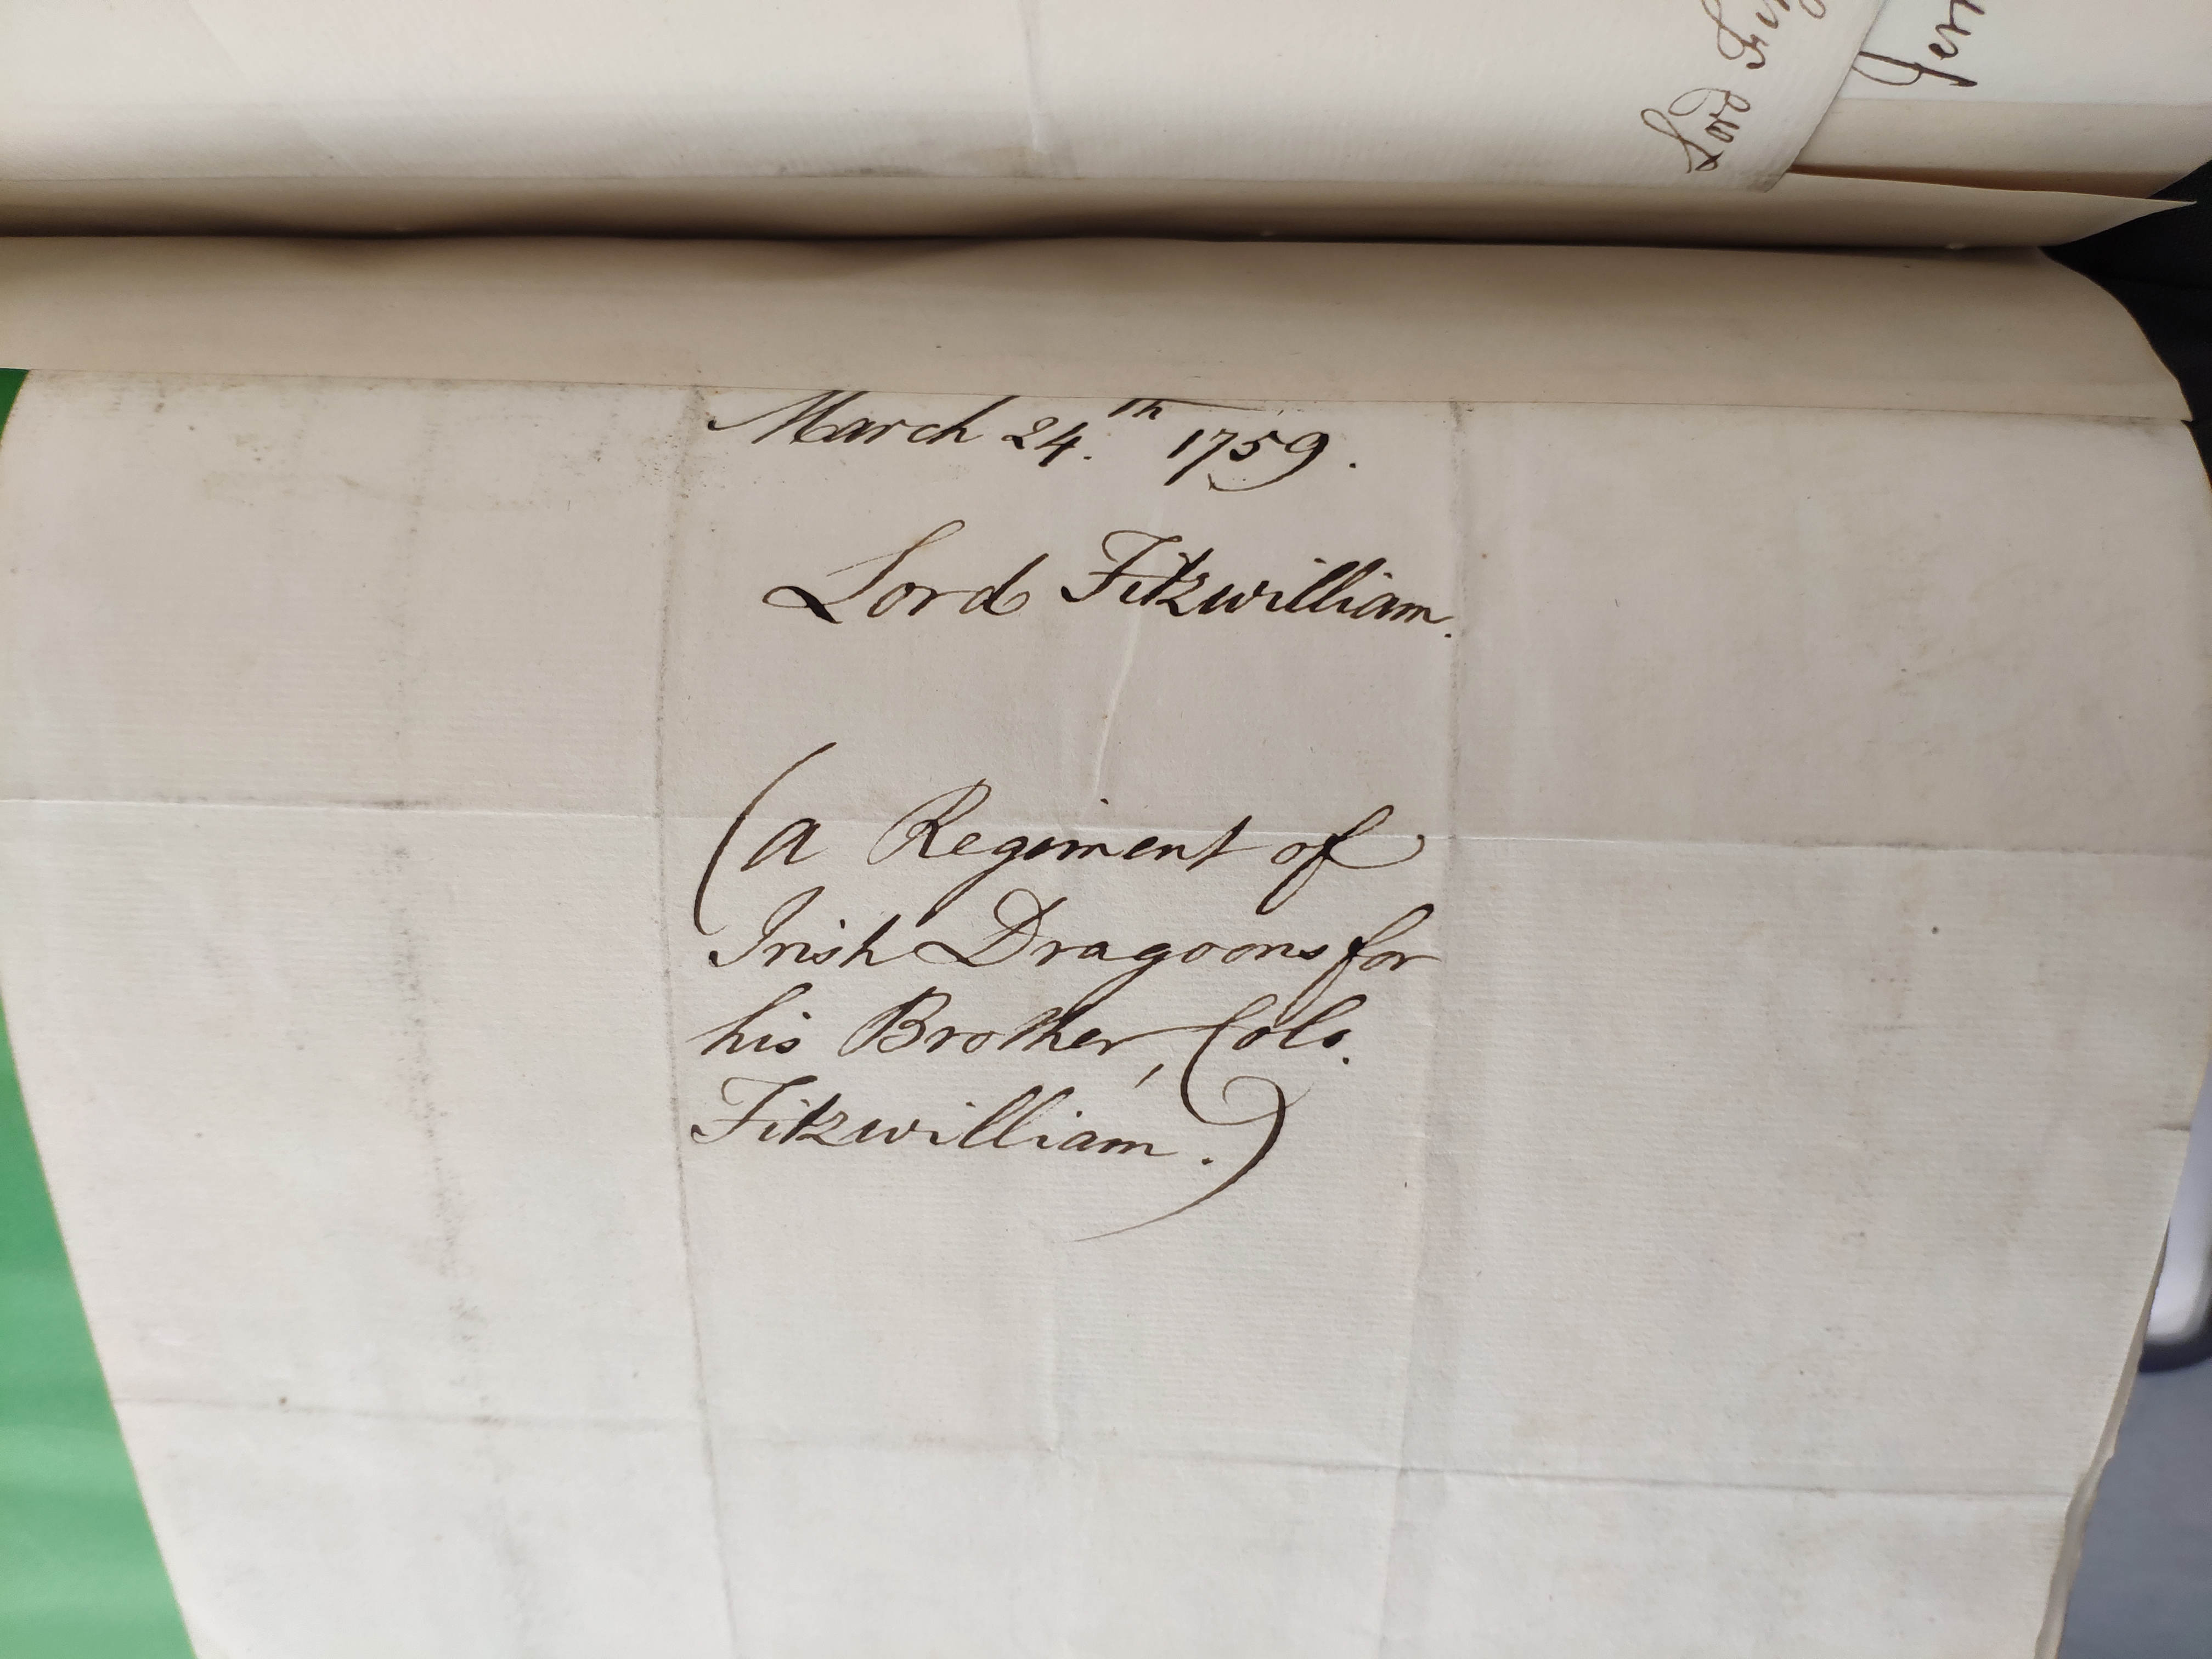 Lord
March 24.th 1759.
Lord Fitzwilliam.
(a Regiment of
Irish Dragoons for
his Brother, Colo.
Fitzwilliam.)